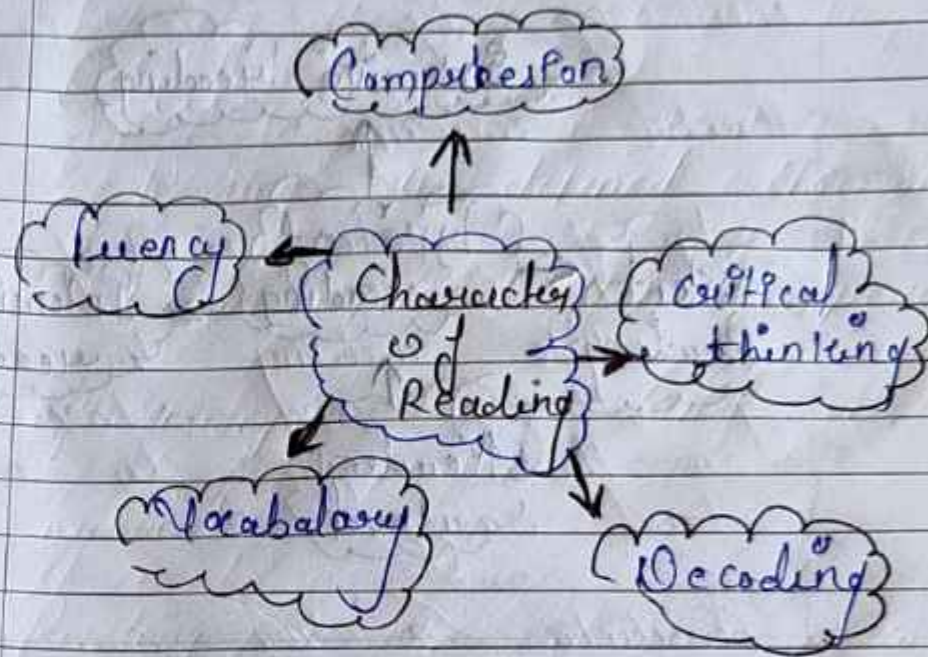 Comprehesion
Fluency
Character
of
Reading
Critical
thinking
Vocabalary
Decoding